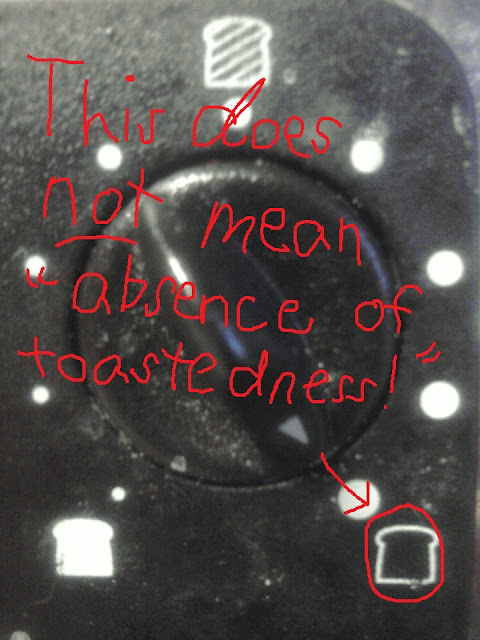 This does
not mean
"absence of
toastedness!"